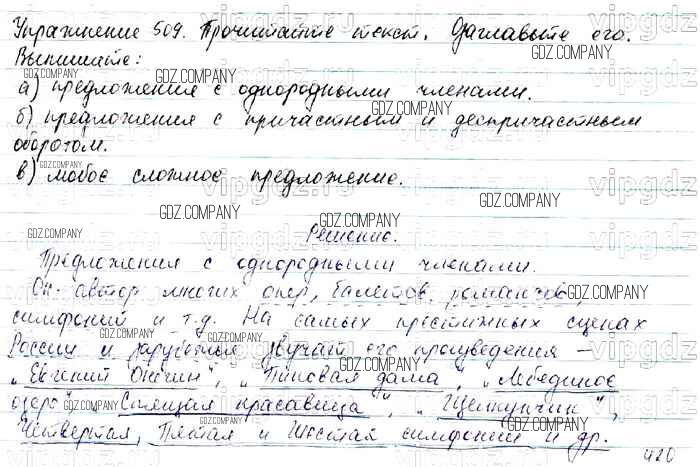 Упражнение 509. Прочитайте текст. Озаглавьте его.
Выпишите:
а) предложения с однородными членами.
б) предложения с причастным и деепричастным
оборотом.
в) любое сложное предложение.
Решение.
Предложения с однородными членами.
Он автор многих опер, балетов, романсов,
симфоний и т.д. На самых престижных сценах
России и зарубежья звучат его произведения –
„Евгений Онегин", „Пиковая дама", „Лебединое
озеро" „Спящая красавица", „Щелкунчик",
Четвертая, Пятая и Шестая симфонии и др.
420